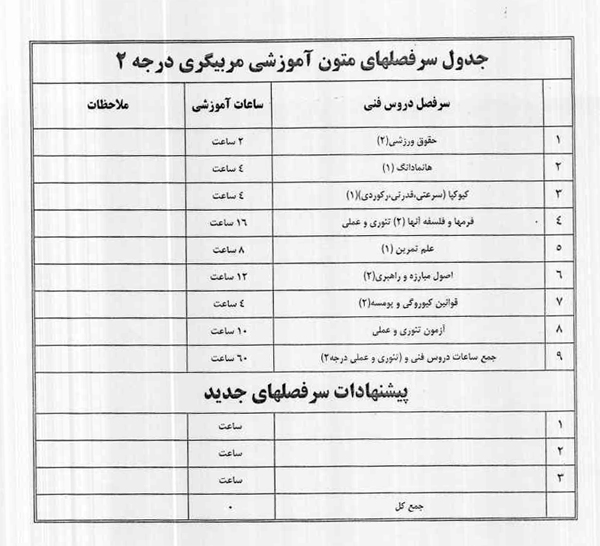 جدول سرفصلهای متون آموزشی مربیگری درجه ۲
سرفصل دروس فنی ساعات آموزشی ملاحظات
۱ حقوق ورزشی(۲) ۲ ساعت
۲ هانمادانگ (۱) ٤ ساعت
۳ کیوکپا (سرعتی،قدرتی،رکوردی)(۱) ٤ ساعت
٤ فرمها و فلسفه آنها (۲) تئوری و عملی ۱٦ ساعت
٥ علم تمرین (۱) ۸ ساعت
٦ اصول مبارزه و راهبری(۲) ۱۲ ساعت
۷ قوانین کیوروگی و پومسه(۲) ٤ ساعت
۸ آزمون تئوری و عملی ۱۰ ساعت
۹ جمع ساعات دروس فنی و (تئوری و عملی درجه۲) ٦۰ ساعت
پیشنهادات سرفصلهای جدید
۱ ساعت
۲ ساعت
۳ ساعت
جمع کل ۰